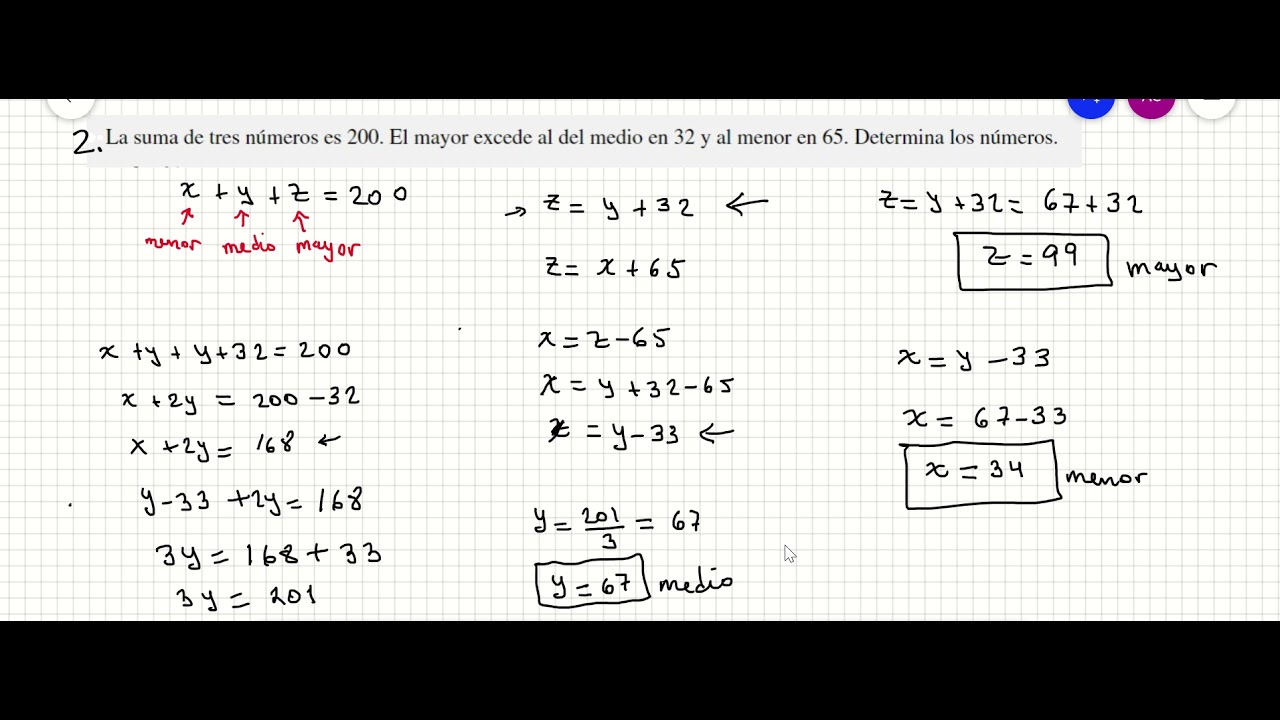 2. La suma de tres números es 200. El mayor excede al del medio en 32 y al menor en 65. Determina los números.
x + y + z = 200
menor medio mayor
x + y + y + 32 = 200
x + 2y = 200 - 32
x + 2y = 168 ←
y - 33 + 2y = 168
3y = 168 + 33
3y = 201
→ z = y + 32 ←
z = x + 65
x = z - 65
x = y + 32 - 65
x = y - 33 ←
y = 201/3 = 67
y = 67 medio
z = y + 32 = 67 + 32
z = 99 mayor
x = y - 33
x = 67 - 33
x = 34 menor